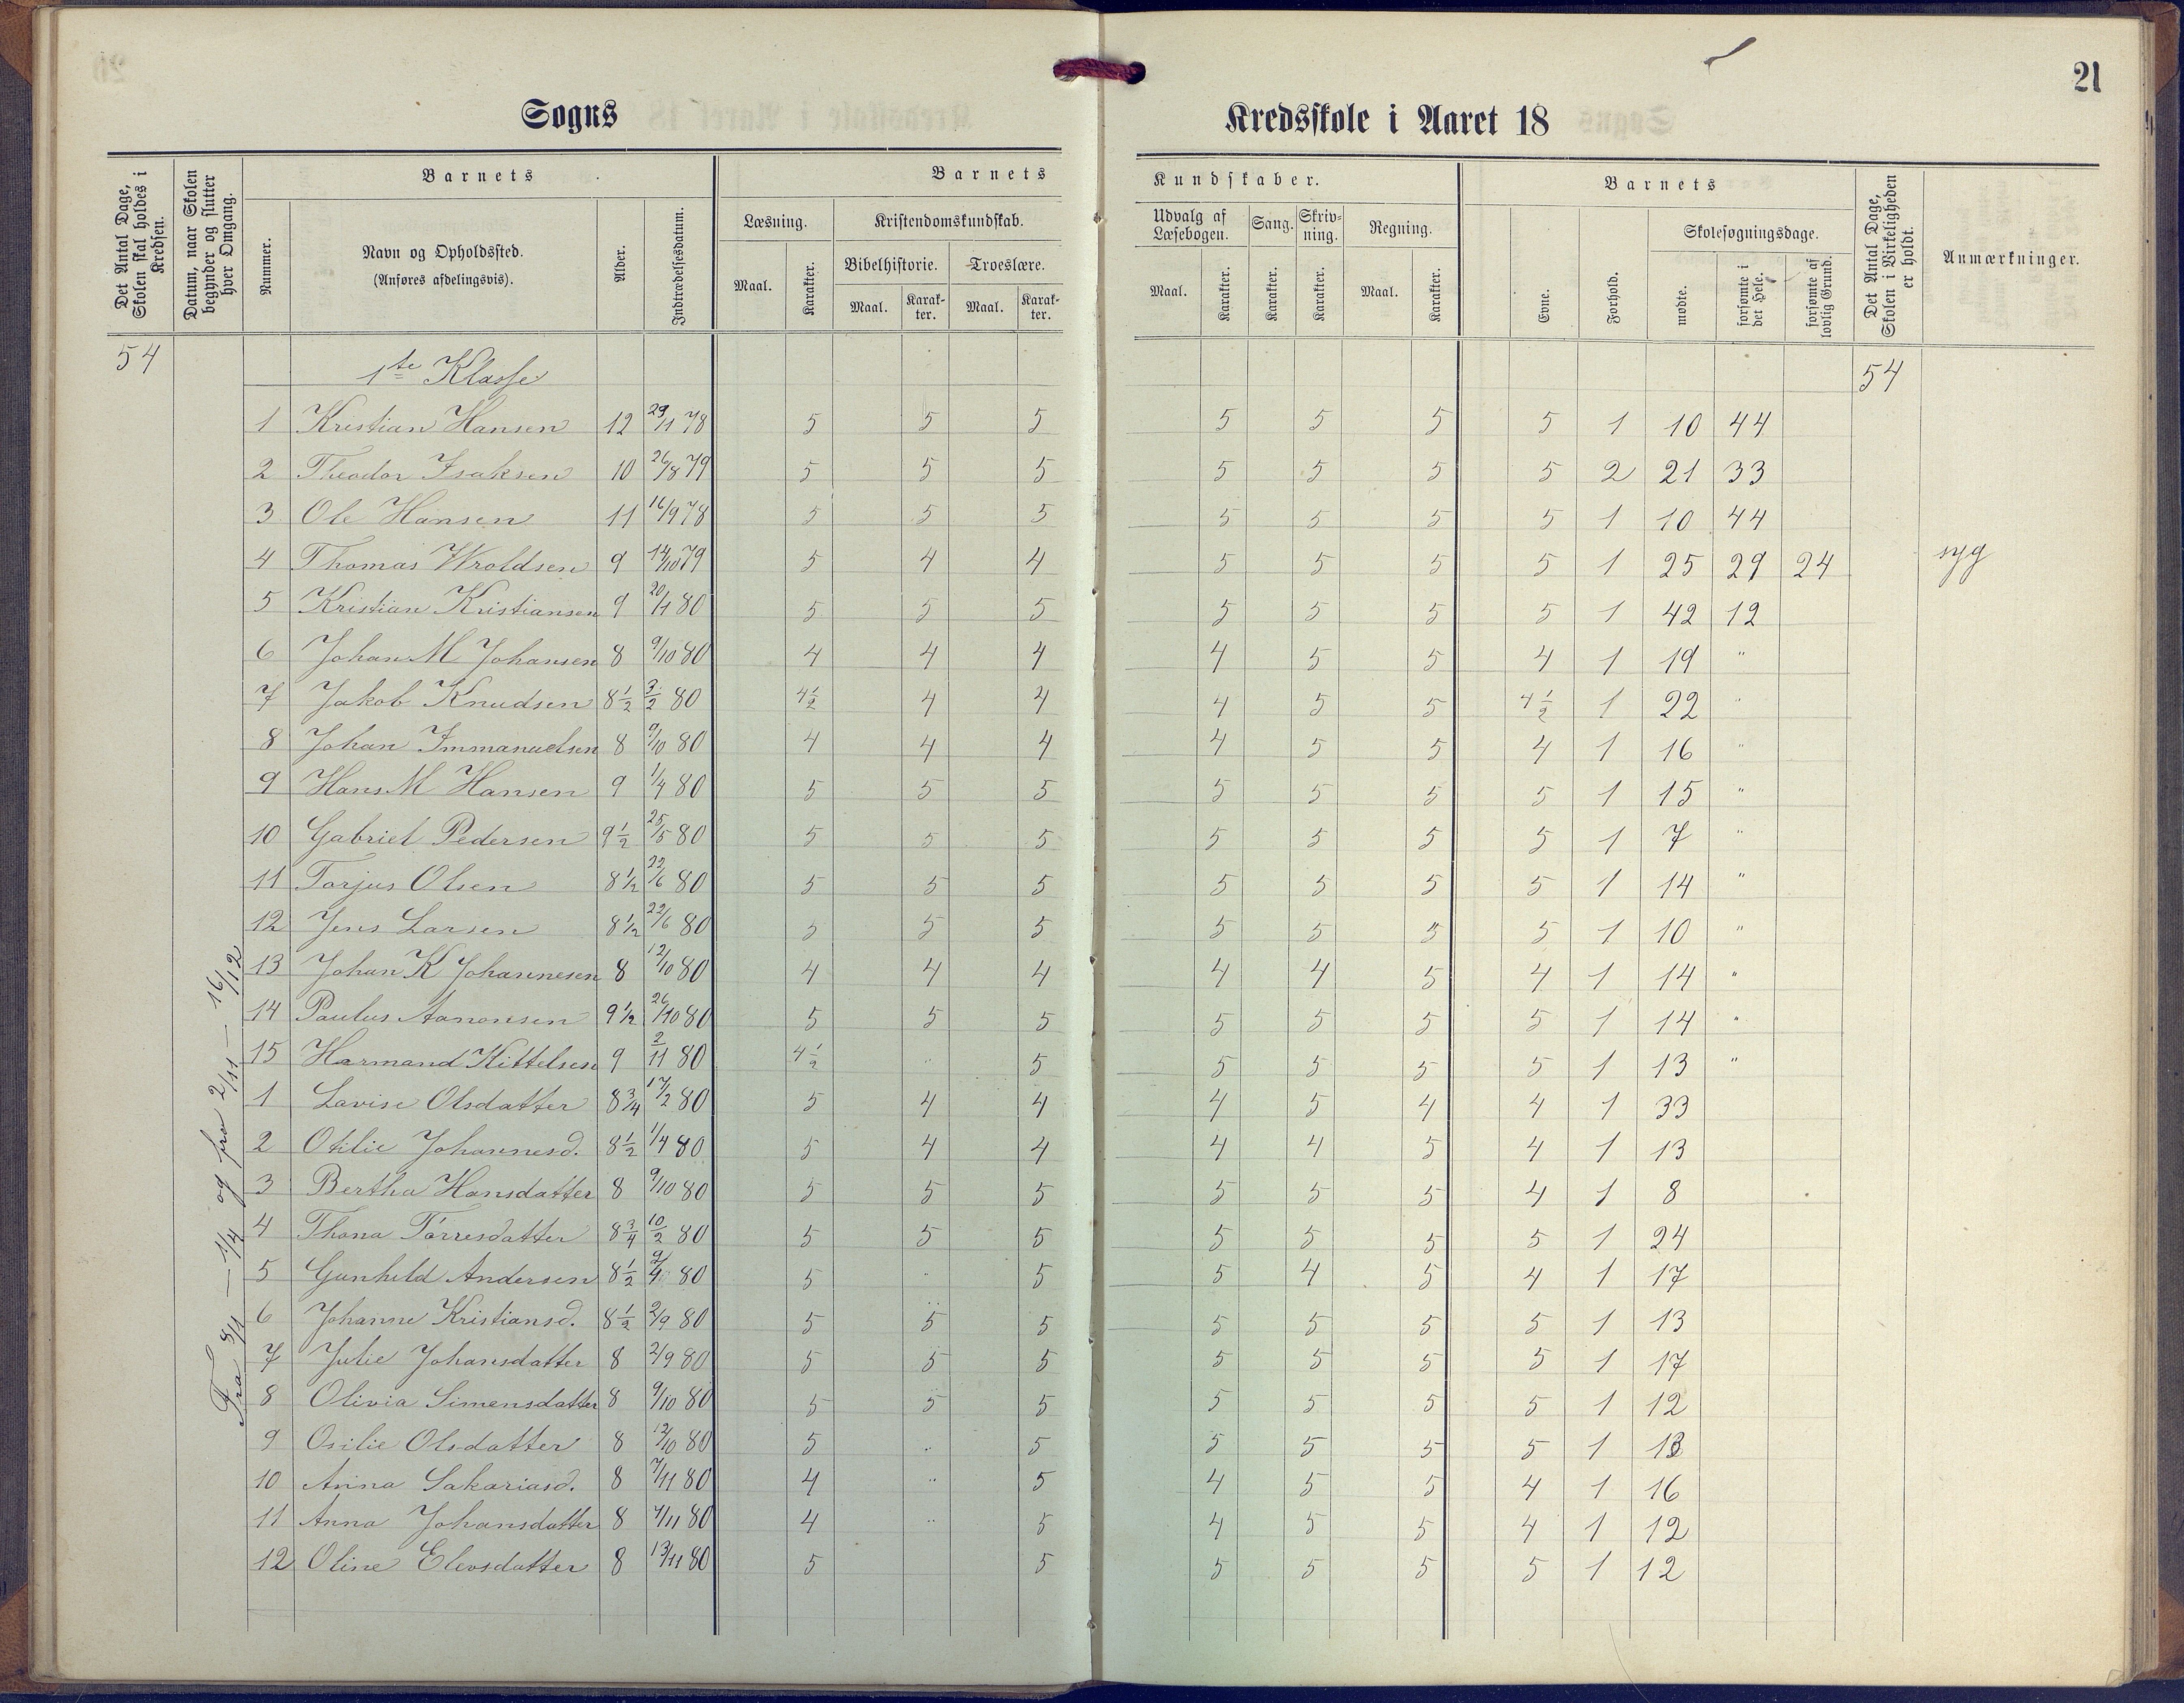 21
Sogns Kredsskole i Aaret 18
Det Antal Dage, Skolen skal holdes i Kredsen.
Datum, naar Skolen begynder og slutter hver Omgang.
Barnets
Nummer.
Navn og Opholdssted.
(Anføres afdelingsvis).
Alder.
Indtrædelsesdatum.
Barnets Kundskaber.
Læsning.
Maal. Karakter.
Kristendomskundskab.
Bibelhistorie. Troeslære.
Maal. Karakter. Maal. Karakter.
Udvalg af Læsebogen. Sang. Skrivning. Regning.
Maal. Karakter. Karakter. Karakter. Maal. Karakter.
Barnets
Evne. Forhold.
Skolesøgningsdage.
mødte. forsømte i det Hele. forsømte af lovlig Grund.
Det Antal Dage, Skolen i Virkeligheden er holdt.
Anmærkninger.
54 1ste Klasse 54
Fra 8/1 — 1/4 og fra 2/11 — 16/12
1 Kristian Hansen 12 29/11 78 5 5 5 5 5 5 5 1 10 44
2 Theodor Isaksen 10 26/8 79 5 5 5 5 5 5 5 2 21 33
3 Ole Hansen 11 16/9 78 5 5 5 5 5 5 5 1 10 44
4 Thomas Wroldsen 9 14/10 79 5 4 4 5 5 5 5 1 25 29 24 syg
5 Kristian Kristiansen 9 20/1 80 5 5 5 5 5 5 5 1 42 12
6 Johan M Johansen 8 9/10 80 4 4 4 4 5 5 4 1 19 "
7 Jakob Knudsen 8 1/2 3/2 80 4 1/2 4 4 4 5 5 4 1/2 1 22 "
8 Johan Immanuelsen 8 9/10 80 4 4 4 4 5 5 4 1 16 "
9 Hans M Hansen 9 1/4 80 5 5 5 5 5 5 5 1 15 "
10 Gabriel Pedersen 9 1/2 25/5 80 5 5 5 5 5 5 5 1 7 "
11 Tarjus Olsen 8 1/2 22/6 80 5 5 5 5 5 5 5 1 14 "
12 Jens Larsen 8 1/2 22/6 80 5 5 5 5 5 5 5 1 10 "
13 Johan K Johannesen 8 12/10 80 4 4 4 4 4 5 4 1 14 "
14 Paulus Aanonsen 9 1/2 26/10 80 5 5 5 5 5 5 5 1 14 "
15 Harmand Kittelsen 9 2/11 80 4 1/2 " 5 5 5 5 5 1 13 "
1 Lavise Olsdatter 8 3/4 17/2 80 5 4 4 4 5 4 4 1 33
2 Otilie Johannesd. 8 1/2 1/4 80 5 4 4 4 4 5 4 1 13
3 Bertha Hansdatter 8 9/10 80 5 5 5 5 5 5 4 1 8
4 Thona Torresdatter 8 3/4 10/2 80 5 5 5 5 5 5 5 1 24
5 Gunhild Andersen 8 1/2 9/4 80 5 " 5 5 4 5 4 1 17
6 Johanne Kristiansd. 8 1/2 2/9 80 5 5 5 5 5 5 5 1 13
7 Julie Johansdatter 8 2/9 80 5 5 5 5 5 5 5 1 17
8 Olivia Simensdatter 8 9/10 80 5 5 5 5 5 5 5 1 12
9 Osilie Olsdatter 8 12/10 80 5 " 5 5 5 5 5 1 13
10 Anna Sakariasd. 8 7/11 80 4 " 5 4 5 5 4 1 16
11 Anna Johansdatter 8 7/11 80 4 " 5 4 5 5 4 1 12
12 Oline Elevsdatter 8 13/11 80 5 5 5 5 5 5 1 12